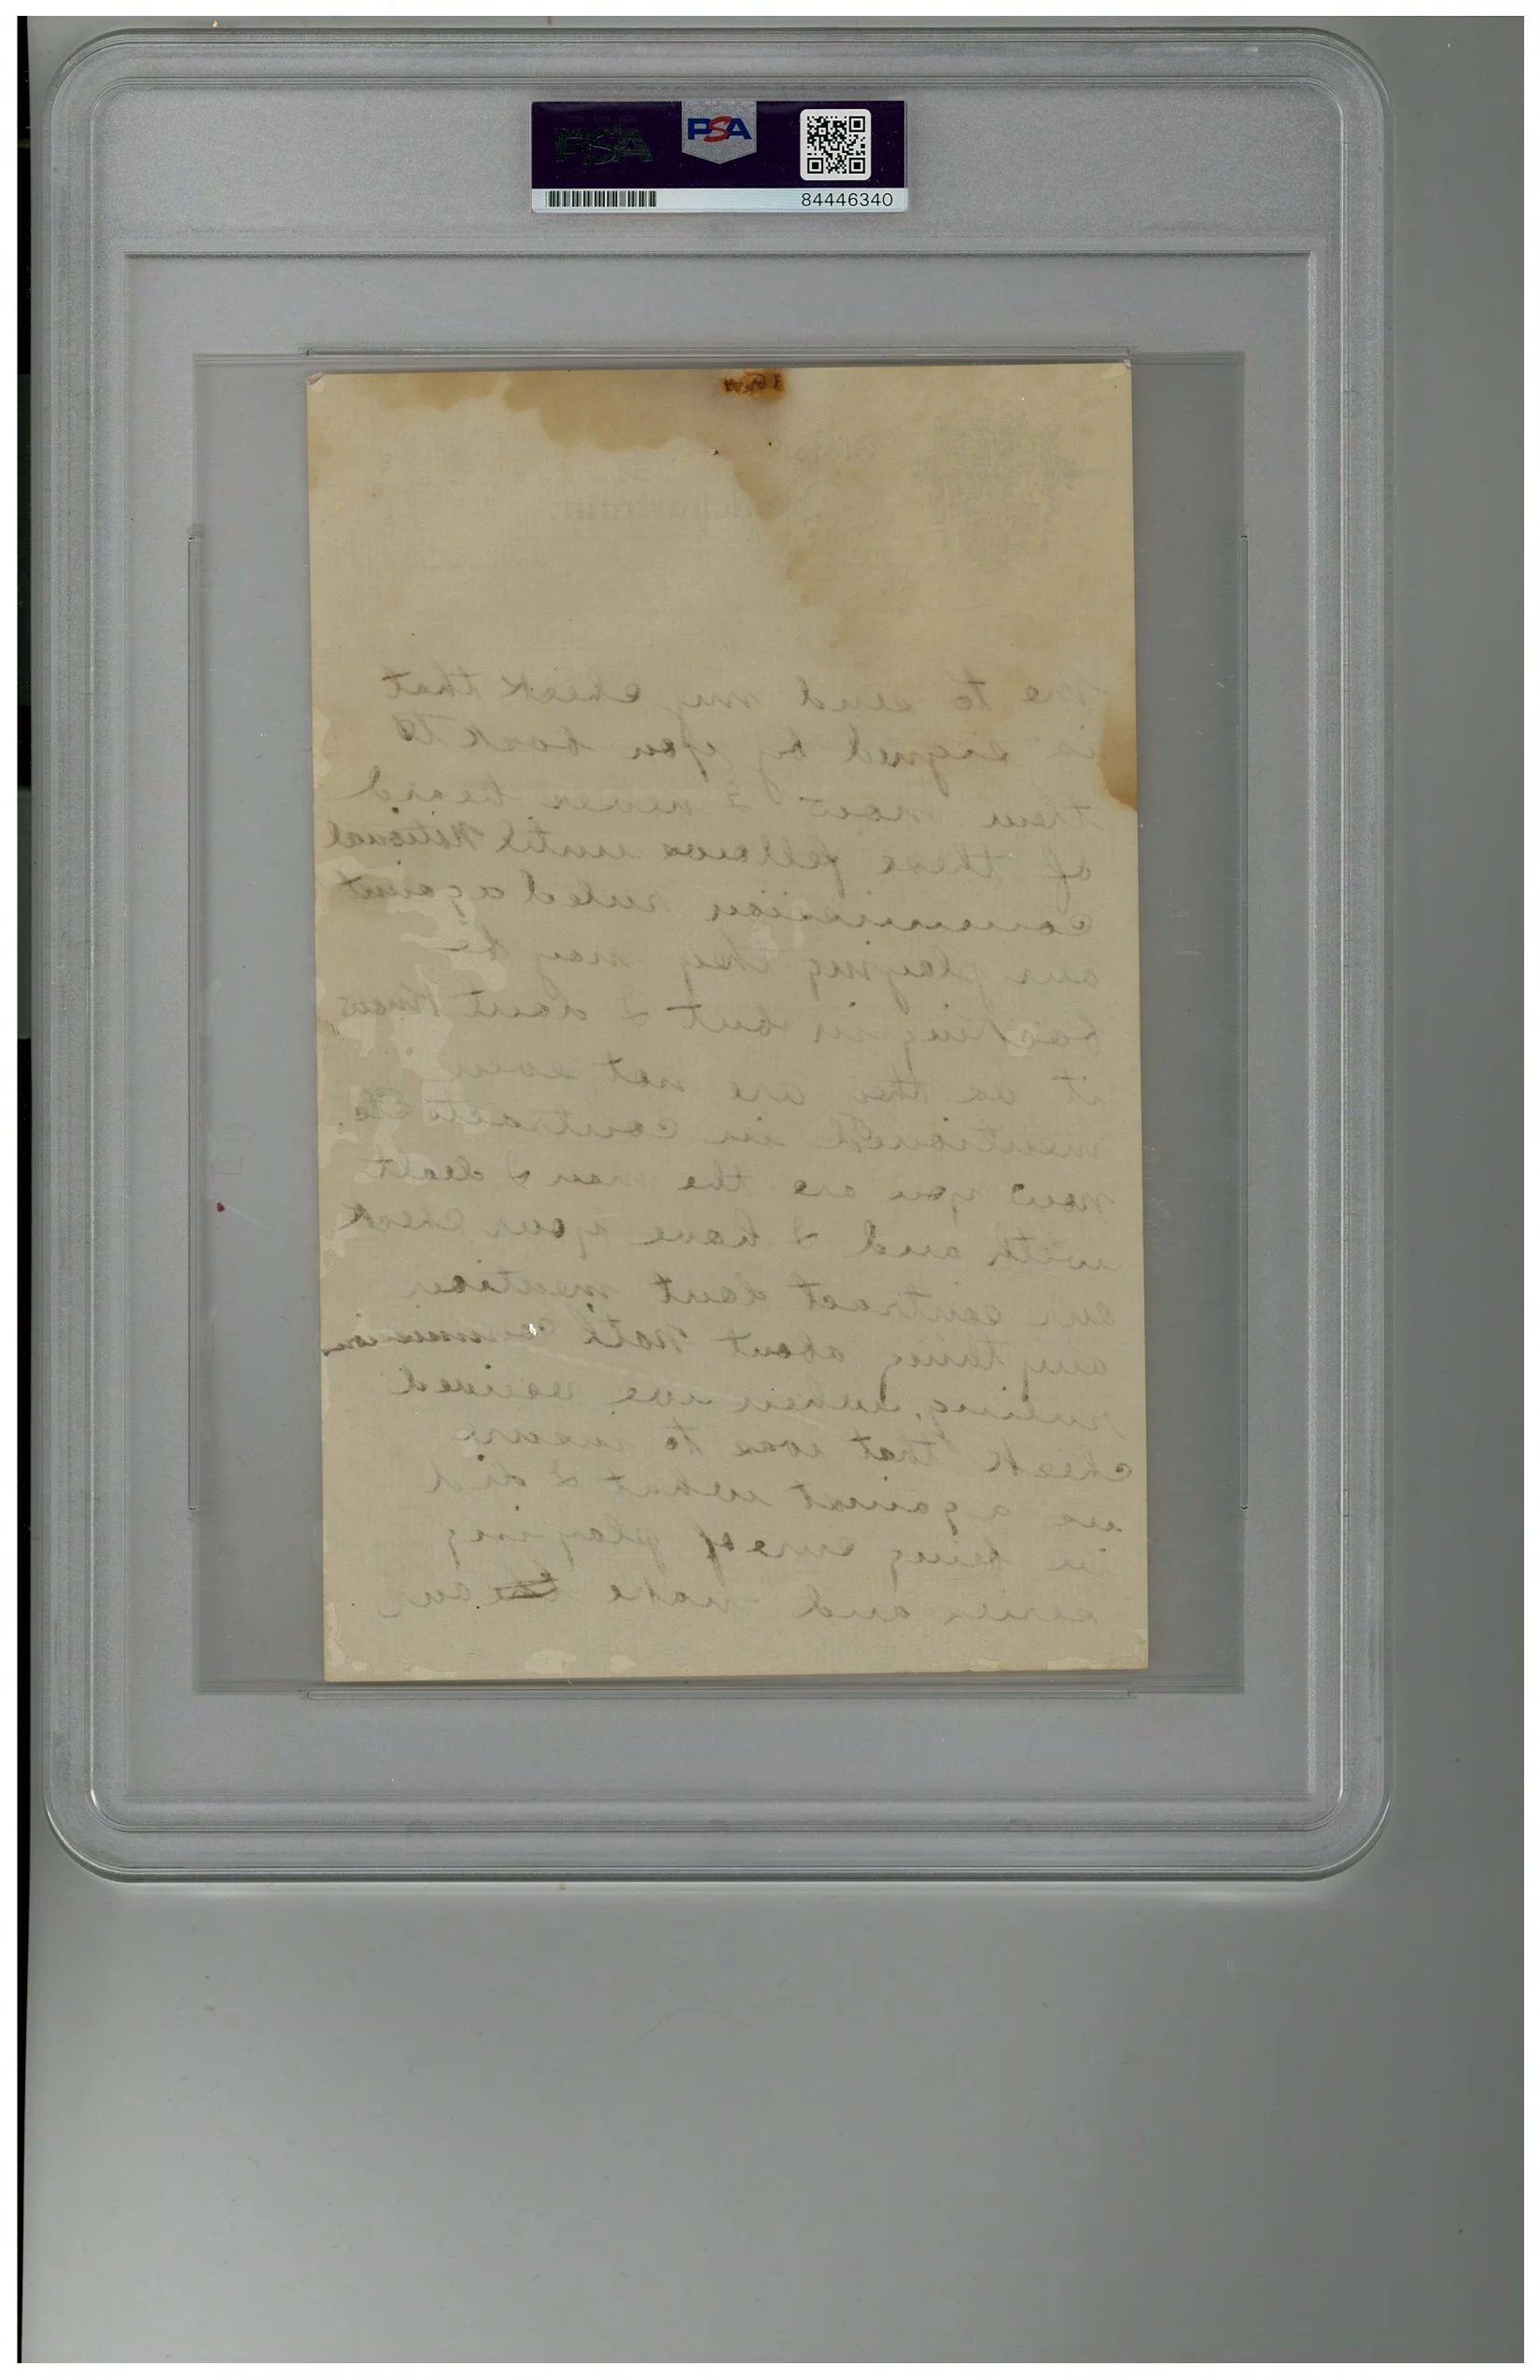 PSA
PSA
84446340
Pontchartrain.
me to send my check that
is signed by you back to
them now I never heard
of these fellows until National
commission ruled against
our playing they may be
backing in but I dont know
it as they are not even
mentioned in contracts etc.
now you are the man I dealt
with and I have your check
our contract dont mention
anything about Natl commission
ruling, when we received
check that was to insure
us against what I did
in being sure of playing
series and make the our